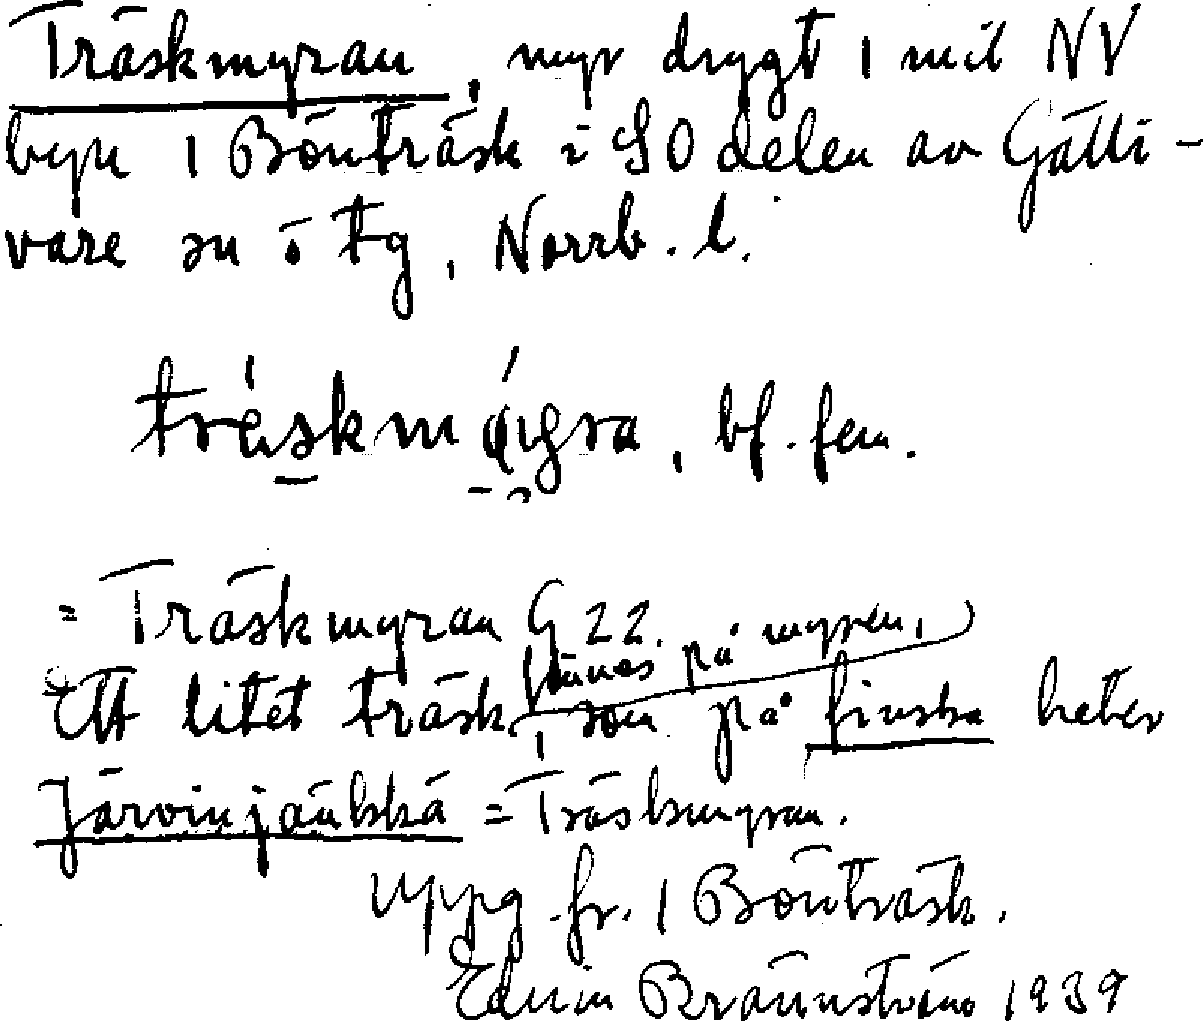 Träskmyran, myr drygt 1 mil NV
byn 1 Bönträsk i SO delen av Gälli-
vare sn o tg, Norrb. l.
bf. fem.
= Träskmyran G 22.
finnes på myren,
Ett litet träsk, som på finska heter
Järvinjäükkä = Träskmyran.
Uppg. fr. 1 Bönträsk.
Edvin Brännström 1939